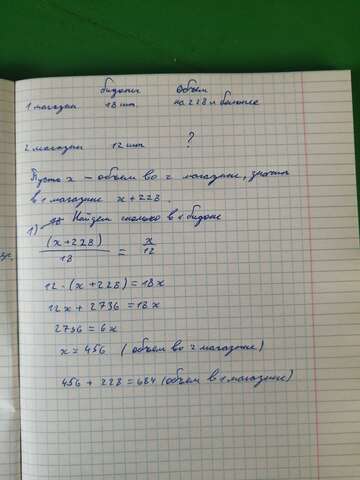 бидоны Объем
1 магазин 18 шт. на 228 л больше
2 магазин 12 шт ?
Пусть x - объем во 2 магазине, значит
в 1 магазине x + 228.
1) Найдем сколько в 1 бидоне
(x+228)/18 = x/12
12·(x+228)=18x
12x + 2736=18x
2736=6x
x=456 (объем во 2 магазине)
456 + 228 = 684 (объем в 1 магазине)